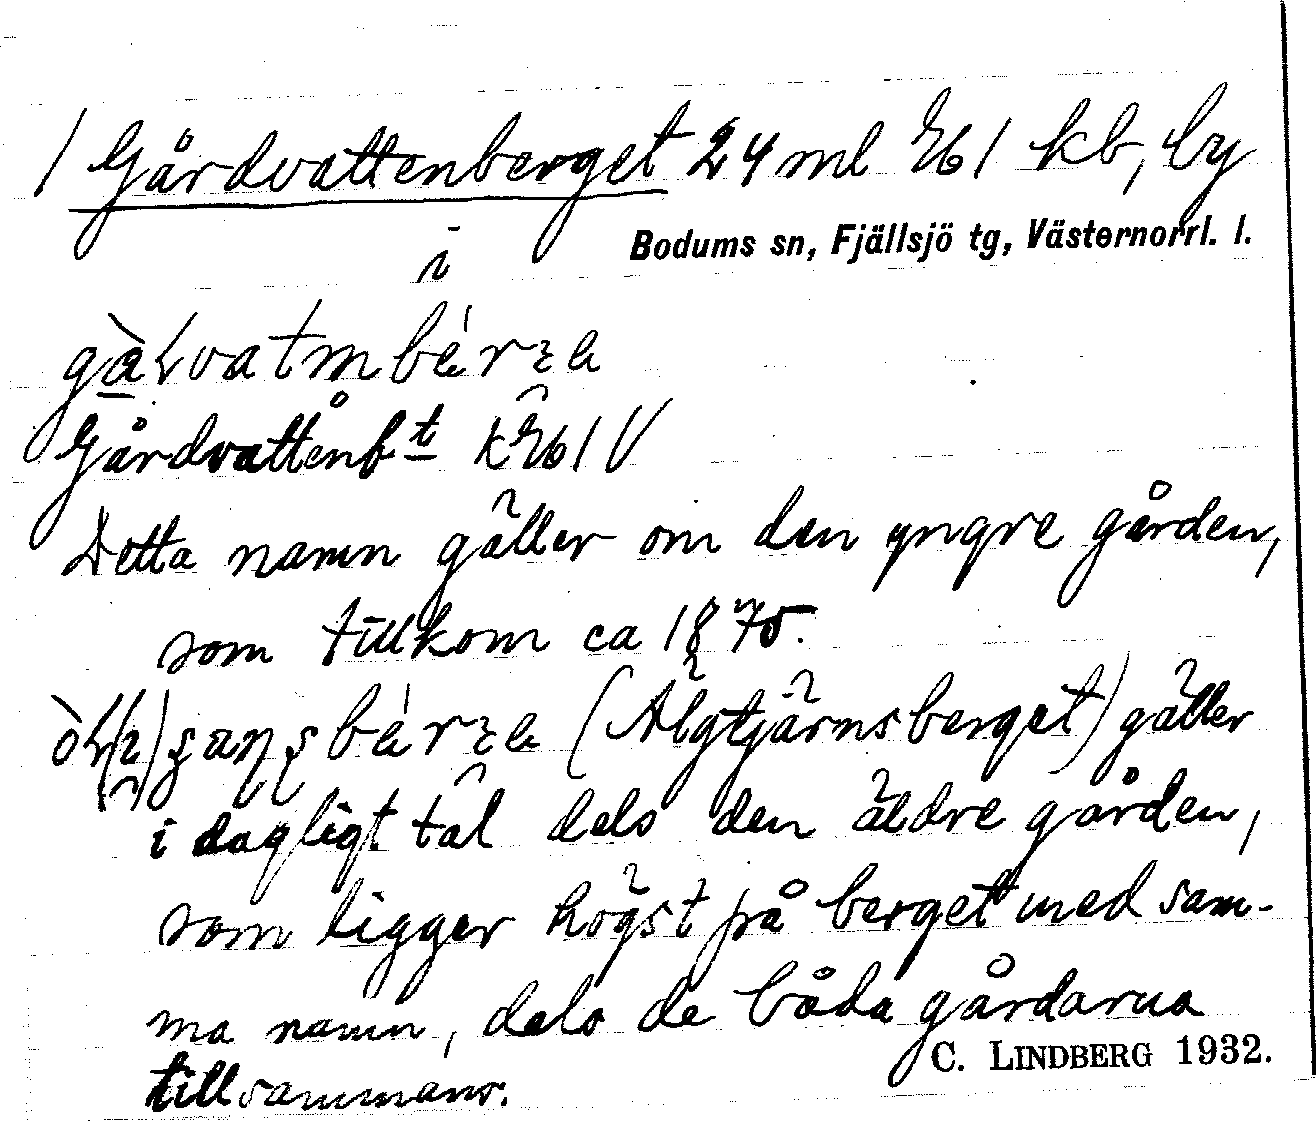 1 Gårdvattenberget 24 ml Eb1 kb, by
i Bodums sn, Fjällsjö tg, Västernorrl. l.
Gårdvattenbt
Detta namn gäller om den yngre gården,
som tillkom ca 1870.
(Älgtjärnsberget) gäller
i dagligt tal dels den äldre gården,
som ligger högst på berget med sam-
ma namn, dels de båda gårdarna
tillsammans.
C. LINDBERG 1932.